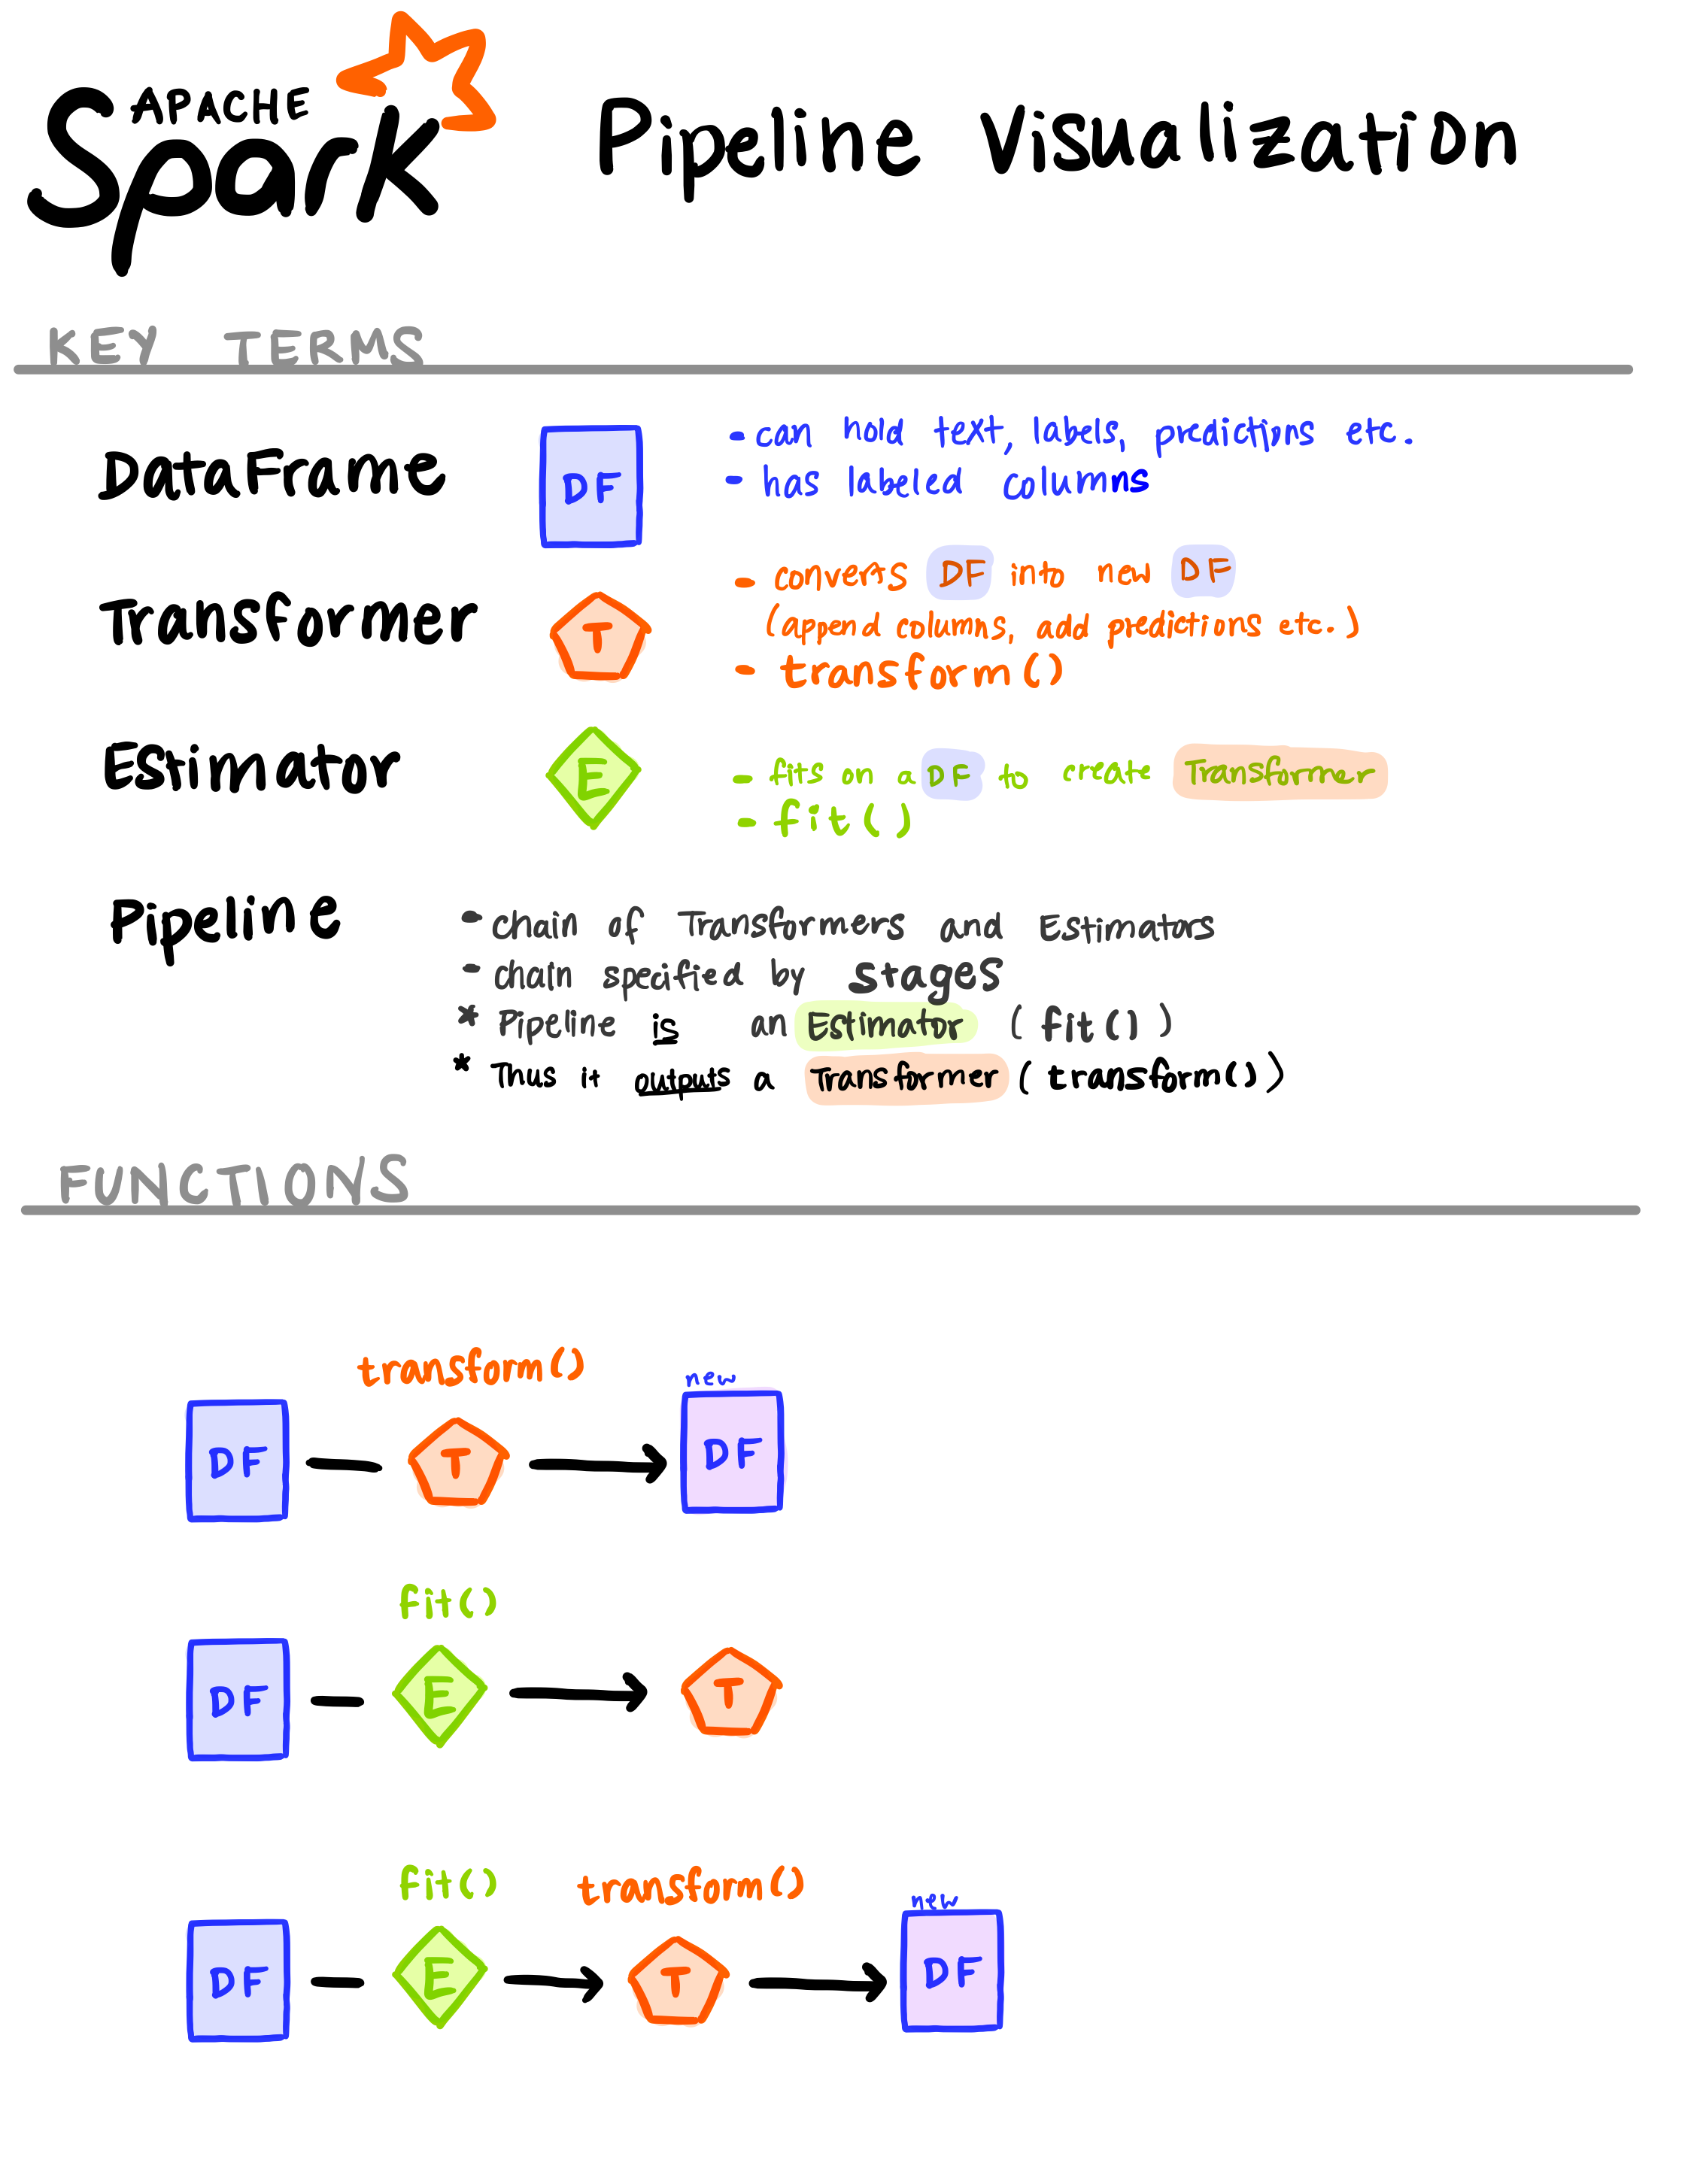 APACHE
Spark
Pipeline Visualization
KEY TERMS
DataFrame
DF
- can hold text, labels, predictions etc.
- has labeled columns
Transformer
T
- converts DF into new DF
(append columns, add predictions etc.)
- transform()
Estimator
E
- fits on a DF to create Transformer
- fit()
Pipeline
- chain of Transformers and Estimators
- chain specified by stages
* Pipeline is an Estimator (fit())
* Thus it outputs a Transformer (transform())
FUNCTIONS
transform()
new
DF
T
DF
fit()
DF
E
T
fit()
transform()
new
DF
E
T
DF